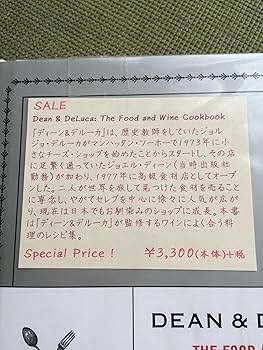 SALE
Dean & DeLuca: The Food and Wine Cookbook
「ディーン&デルーカ」は、歴史教師をしていたジョル
ジョ・デルーカがマンハッタン・ソーホーで1973年に小
さなチーズ・ショップを始めたことからスタートし、その店
に足繁く通っていたジョエル・ディーン(当時出版社
勤務)が加わり、1977年に高級食材店としてオープ
ンした。二人が世界を旅して見つけた食材を売ること
に専念し、やがてセレブを中心に徐々に人気が広
がり、現在は日本でもお馴染みのショップに成長。本書
は「ディーン&デルーカ」が監修するワインによく合う料
理のレシピ集。
Special Price! ¥3,300(本体)+税
DEAN & D
THE FOOD